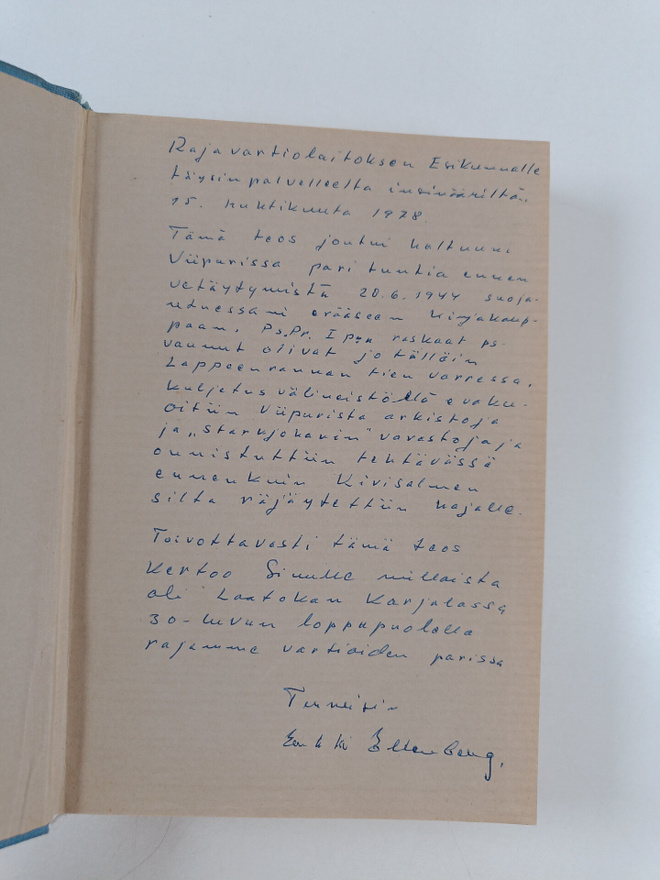 Rajavartiolaitoksen Esikunnalle
täysin palvelleelta insinööriltä.
15. huhtikuuta 1978.
Tämä teos joutui haltuuni
Viipurissa pari tuntia ennen
vetäytymistä 20.6.1944 suoja-
utuessani erääseen kirjakaup-
paan. Ps.Pr. I P:n raskaat ps-
vaunut olivat jo tällöin
Lappeenrannan tien varressa.
Kuljetusvälineistöllä evaku-
oitiin Viipurista arkistoja
ja „Starckjohanin" varastoja ja
onnistuttiin tehtävässä
ennenkuin Kivisalmen
silta räjäytettiin hajalle.
Toivottavasti tämä teos
kertoo Sinulle millaista
oli Laatokan Karjalassa
30-luvun loppupuolella
rajamme vartioiden parissa
Terveisin
Erkki